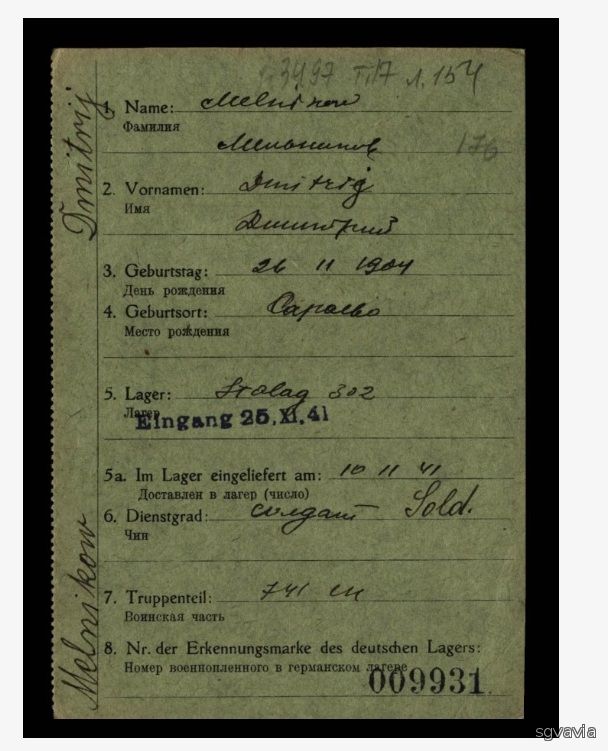 13497 Т.17 л. 154
1. Name: Melnikow
Фамилия
Мельников 176
2. Vornamen: Dmitrij
Имя
Дмитрий
3. Geburtstag: 26 11 1904
День рождения
4. Geburtsort: Сараево
Место рождения
5. Lager: Stalag 302
Лагер
Eingang 25. XI. 41
5a. Im Lager eingeliefert am: 10 11 41
Доставлен в лагер (число)
6. Dienstgrad: солдат Sold.
Чин
7. Truppenteil: 741 сп
Воинская часть
8. Nr. der Erkennungsmarke des deutschen Lagers:
Номер военнопленного в германском лагере
009931
Melnikow Dmitrij
sgvavia